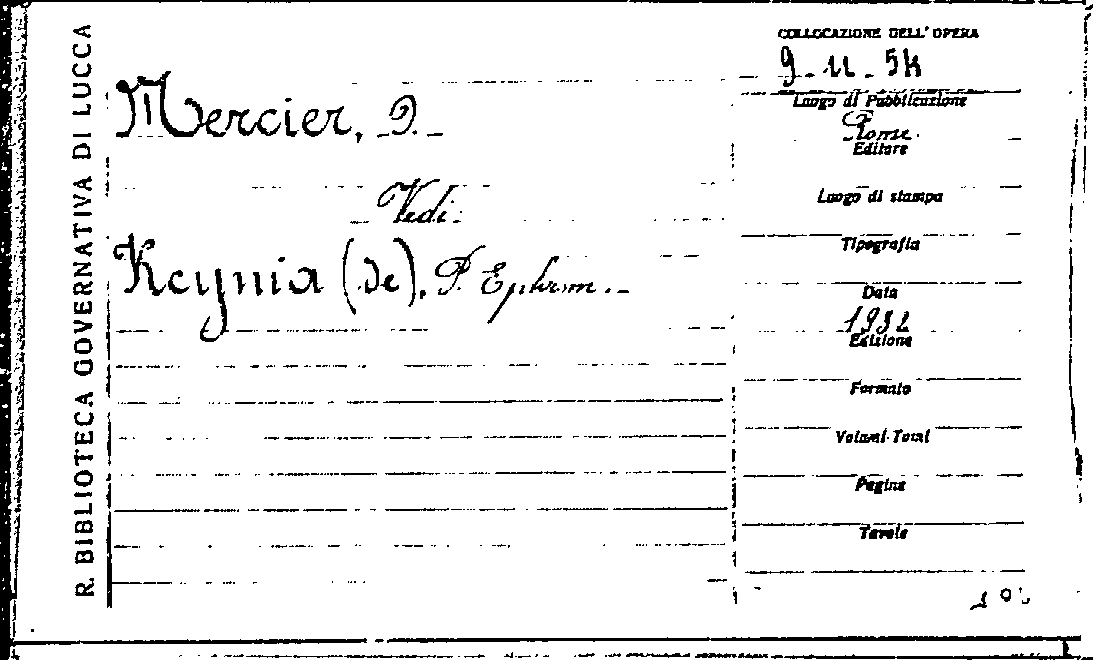 R. BIBLIOTECA GOVERNATIVA DI LUCCA
Mercier, D.
Vedi:
Keynia (de), P. Ephrem.
COLLOCAZIONE DELL' OPERA
9. 11. 54
Luogo di Pubblicazione
Rome.
Editore
Luogo di stampa
Tipografia
Data
1932
Edizione
Formato
Volumi Totali
Pagine
Tavole